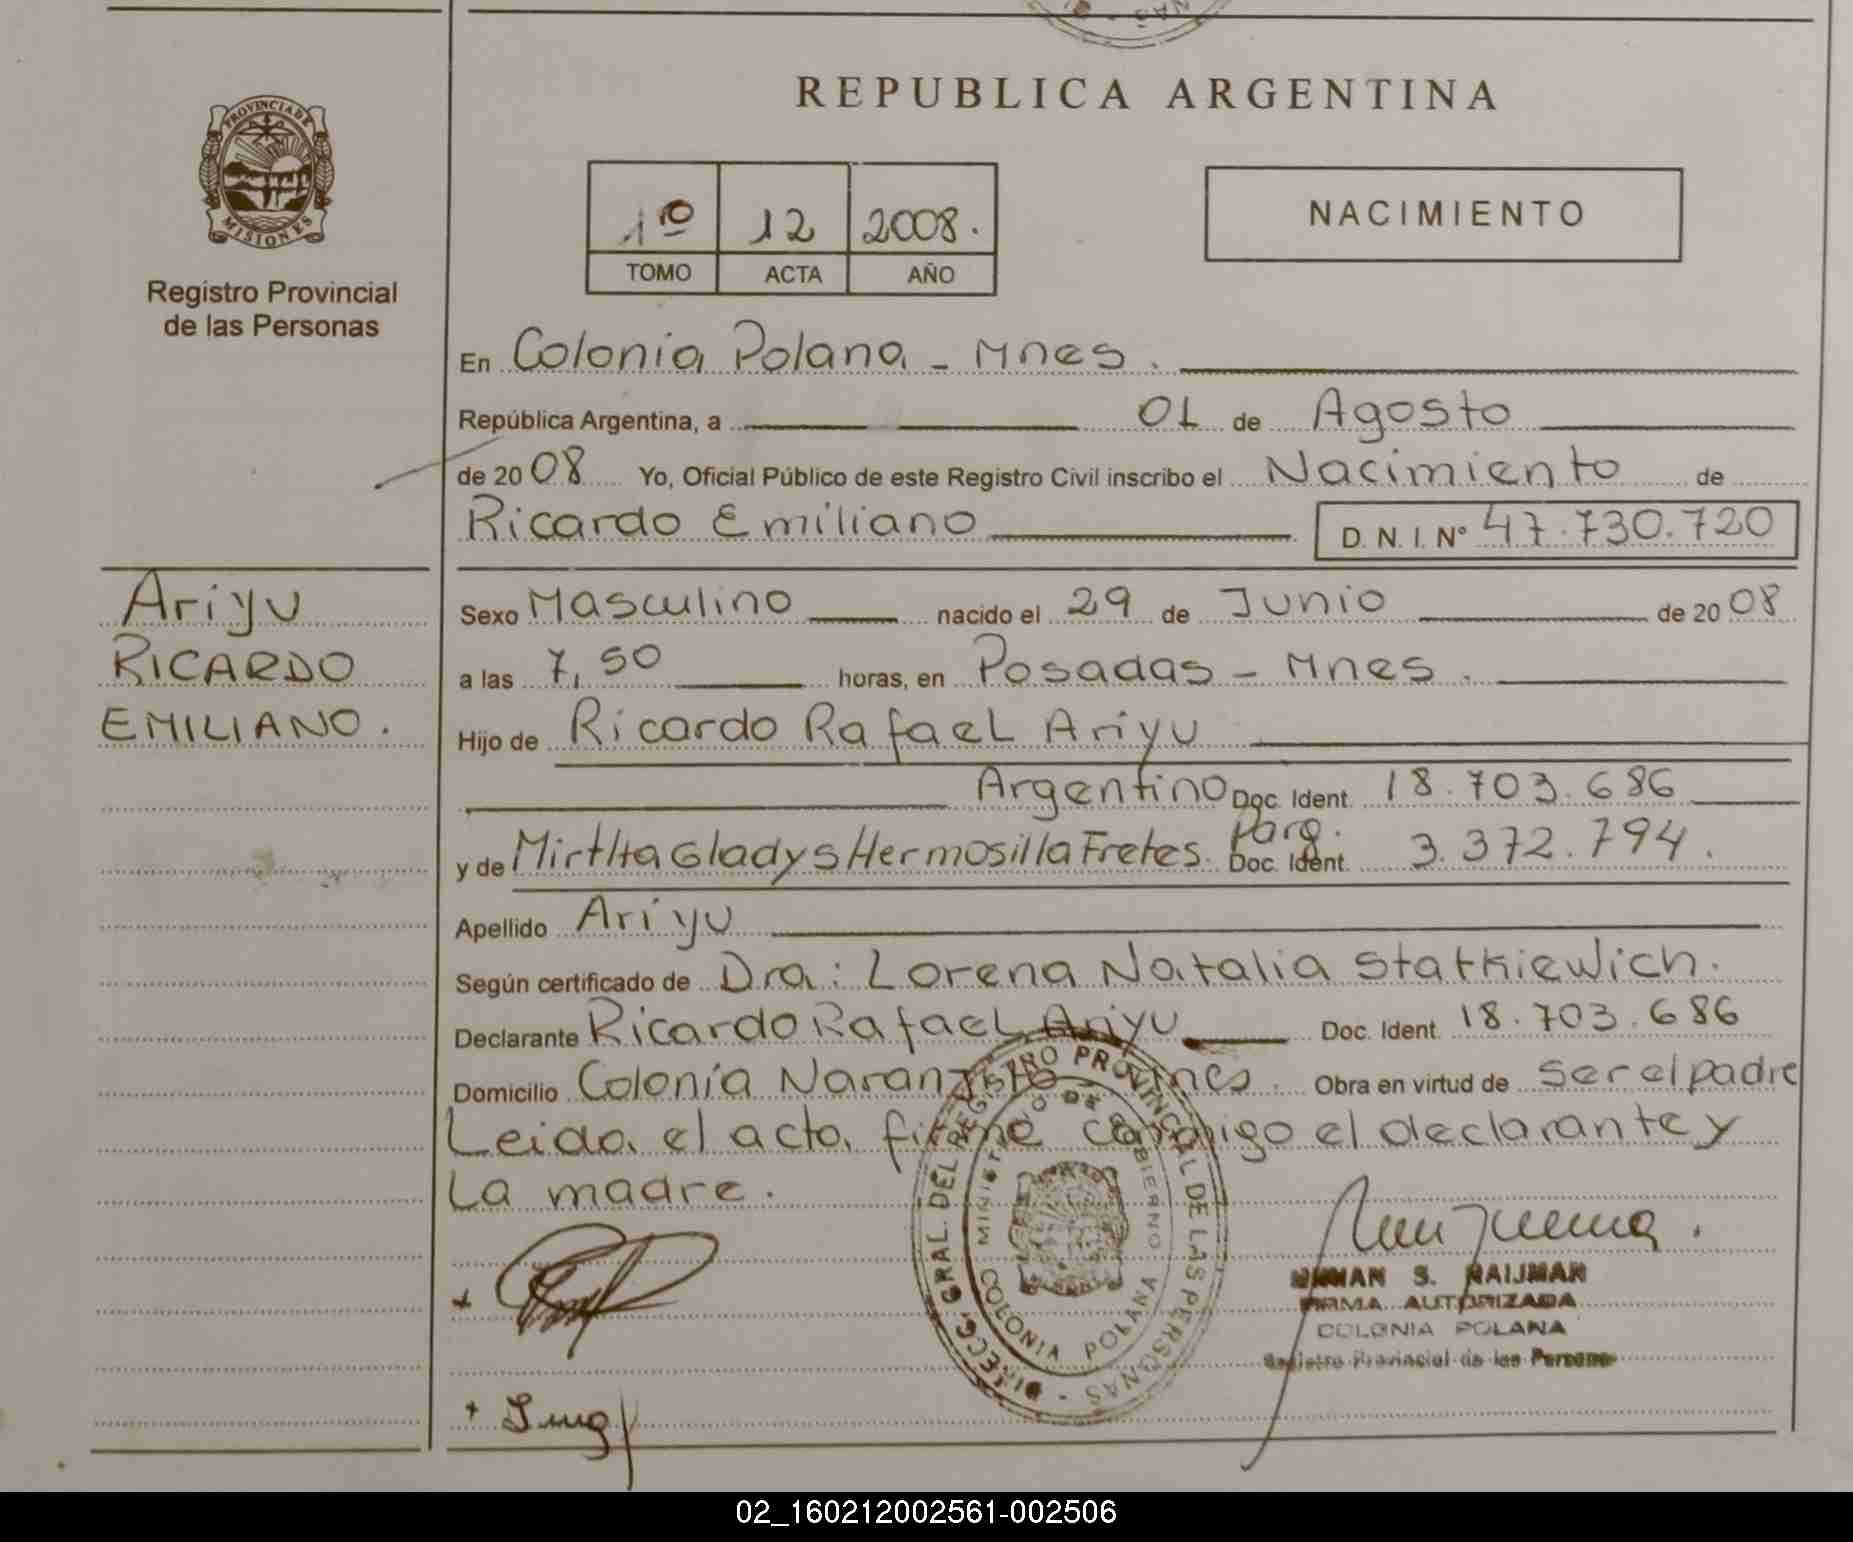 REPUBLICA ARGENTINA
PROVINCIA DE MISIONES
Registro Provincial
de las Personas
1º 12 2008.
TOMO ACTA AÑO
NACIMIENTO
En Colonia Polana - Mnes.
República Argentina, a 01 de Agosto
de 2008 Yo, Oficial Público de este Registro Civil inscribo el Nacimiento de
Ricardo Emiliano D. N. I. Nº 47.730.720
Ariyu
RICARDO
EMILIANO.
Sexo Masculino nacido el 29 de Junio de 2008
a las 7,50 horas, en Posadas - Mnes.
Hijo de Ricardo Rafael Ariyu
Argentino Doc. Ident. 18.703.686
y de Mirtha Gladys Hermosilla Fretes. Parg. Doc. Ident. 3.372.794.
Apellido Ariyu
Según certificado de Dra: Lorena Natalia Statkiewich.
Declarante Ricardo Rafael Ariyu Doc. Ident. 18.703.686
Domicilio Colonia Naranjito Mnes. Obra en virtud de ser el padre
Leida el acta, firma conmigo el declarante y
La madre.
DIRECC. GRAL. DEL REGISTRO PROVINCIAL DE LAS PERSONAS -
MINISTERIO DE GOBIERNO
COLONIA POLANA
S. NAIJMAN
FIRMA AUTORIZADA
COLONIA POLANA
Registro Provincial de las Personas
02_160212002561-002506